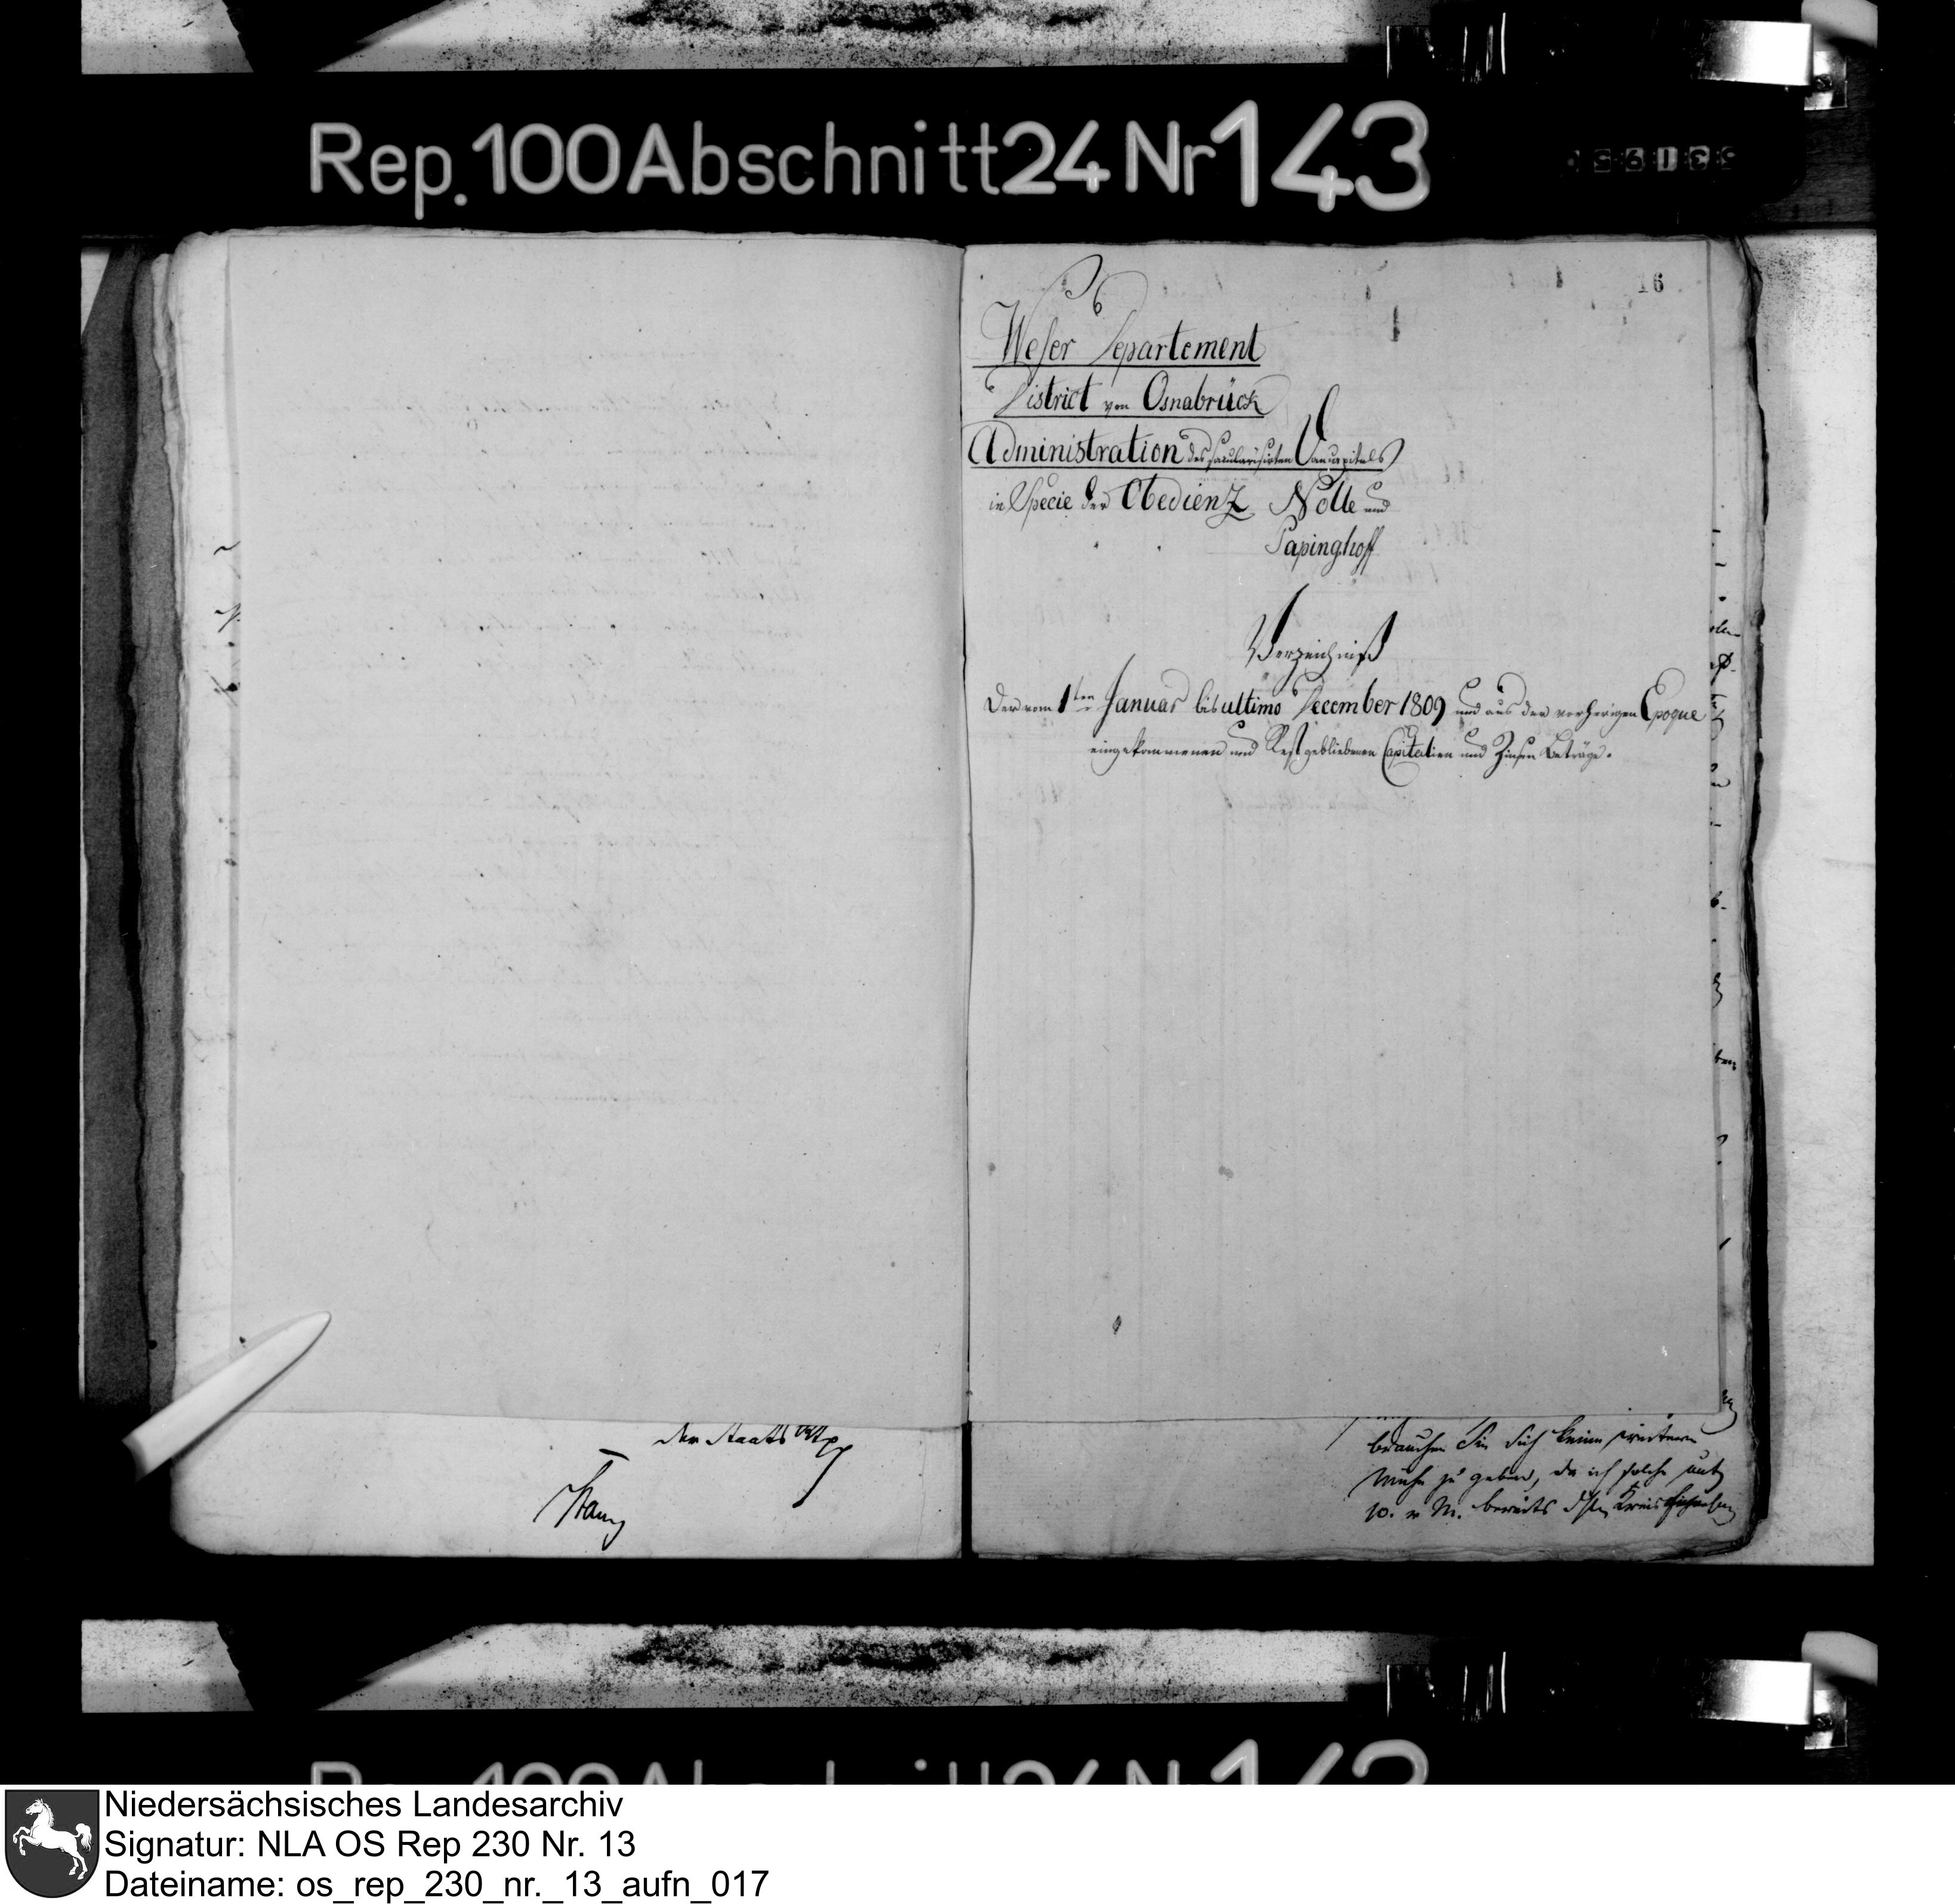 Rep. 100 Abschnitt 24 Nr 143
16
Weser Departement
District von Osnabrück
Administration des säcularisirten Domcapitels
in Specie der Obedienz Nolle und
Papinghoff
Verzeichniß
Der vom 1ten Januar bis ultimo December 1809 und aus der vorherigen Epoque
eingekommenen und Restgebliebenen Capitalien und Zinsen Beträge.
der Staats
brauchen Sie sich keine weitere
Mühe zu geben, da ich solche
10. v. M. bereits
Niedersächsisches Landesarchiv
Signatur: NLA OS Rep 230 Nr. 13
Dateiname: os_rep_230_nr._13_aufn_017